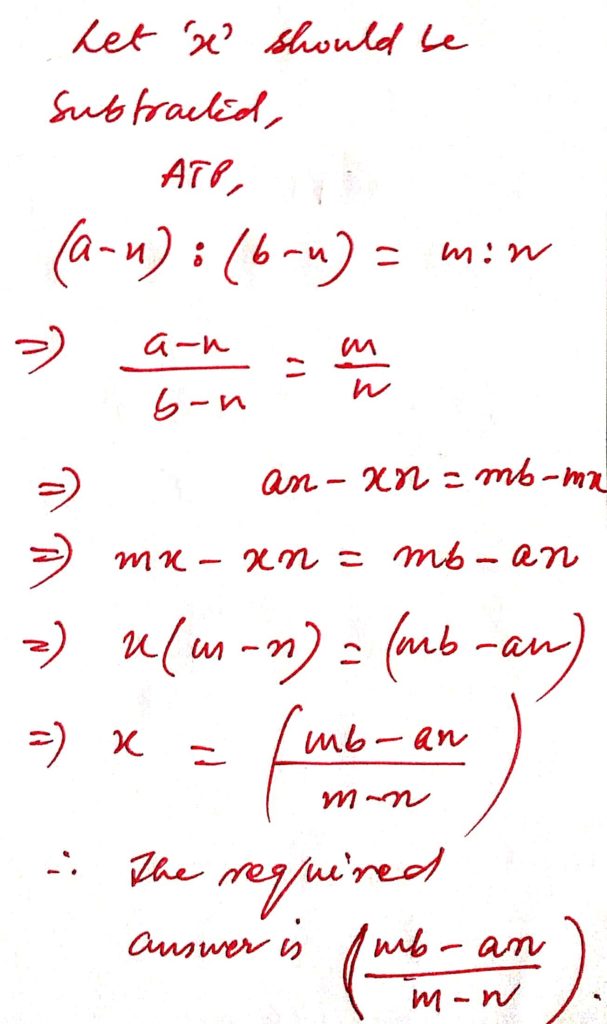 Let 'x' should be
subtracted,
ATP,
(a-x) : (b-x) = m:n
=> a-x/b-x = m/n
=> an - xn = mb - mx
=> mx - xn = mb - an
=> x(m-n) = (mb-an)
=> x = (mb-an/m-n)
∴ The required
answer is (mb-an/m-n).